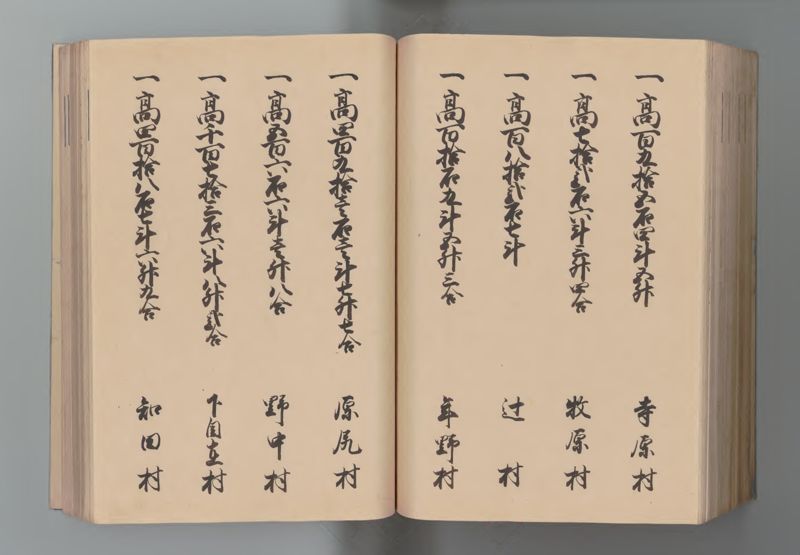 一高百九拾五石四斗五升 寺原村
一高七拾弐石六斗三升四合 牧原村
一高百八拾弐石七斗 辻村
一高百拾石九斗五升三合 年野村
一高四百九拾壱石壱斗七升七合 源尻村
一高五百六石六斗壱升八合 野中村
一高千百七拾三石六斗八升弐合 下自在村
一高四百拾八石七斗六升九合 和田村